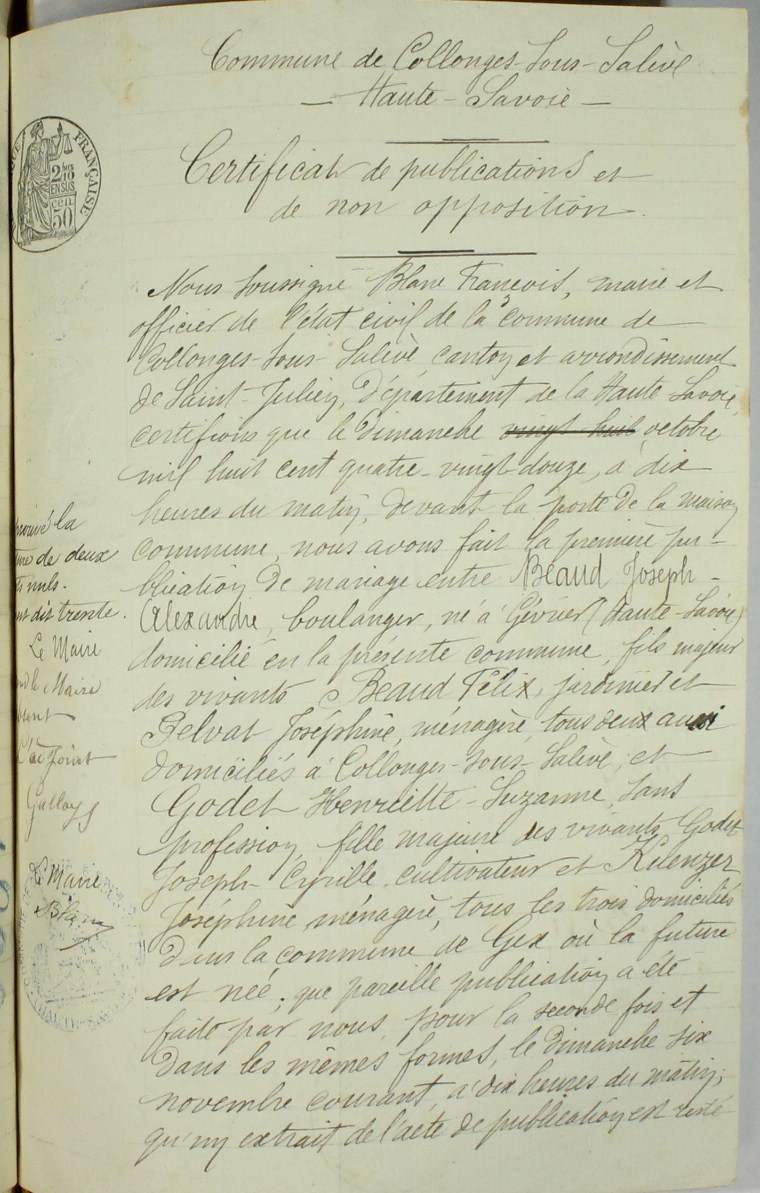 Commune de Collonges-sous-Salève
— Haute-Savoie —
FRANÇAISE
2/10
EN SUS
50
Certificat de publications et
de non opposition.
Nous soussigné Blanc François, maire et
officier de l'état civil de la commune de
Collonges-sous-Salève canton et arrondissement
de Saint-Julien, Département de la Haute-Savoie,
certifions que le Dimanche vingt-huit octobre
mil huit cent quatre-vingt-douze, à dix
heures du matin, devant la porte de la maison
commune, nous avons fait la première pu-
blication de mariage entre Béaud Joseph-
Alexandre, boulanger, né à Gévrier (Haute-Savoie)
domicilié en la présente commune, fils majeur
des vivants Béaud Félix, jardinier et
Pelvat Joséphine, ménagère, tous deux aussi
domiciliés à Collonges-sous-Salève, et
Godet Henriette-Suzanne, sans
profession, fille majeure des vivants Godet
Joseph-Cyrille, cultivateur et
Joséphine, ménagère, tous les trois domiciliés
dans la commune de Gex où la future
est née; que pareille publication a été
faite par nous, pour la seconde fois et
dans les mêmes formes, le Dimanche six
novembre courant, à dix heures du matin;
qu'un extrait de l'acte de publication est resté
la
de deux
nuls.
dit trente.
Le Maire
le Maire
L'adjoint
Le Maire
Blanc